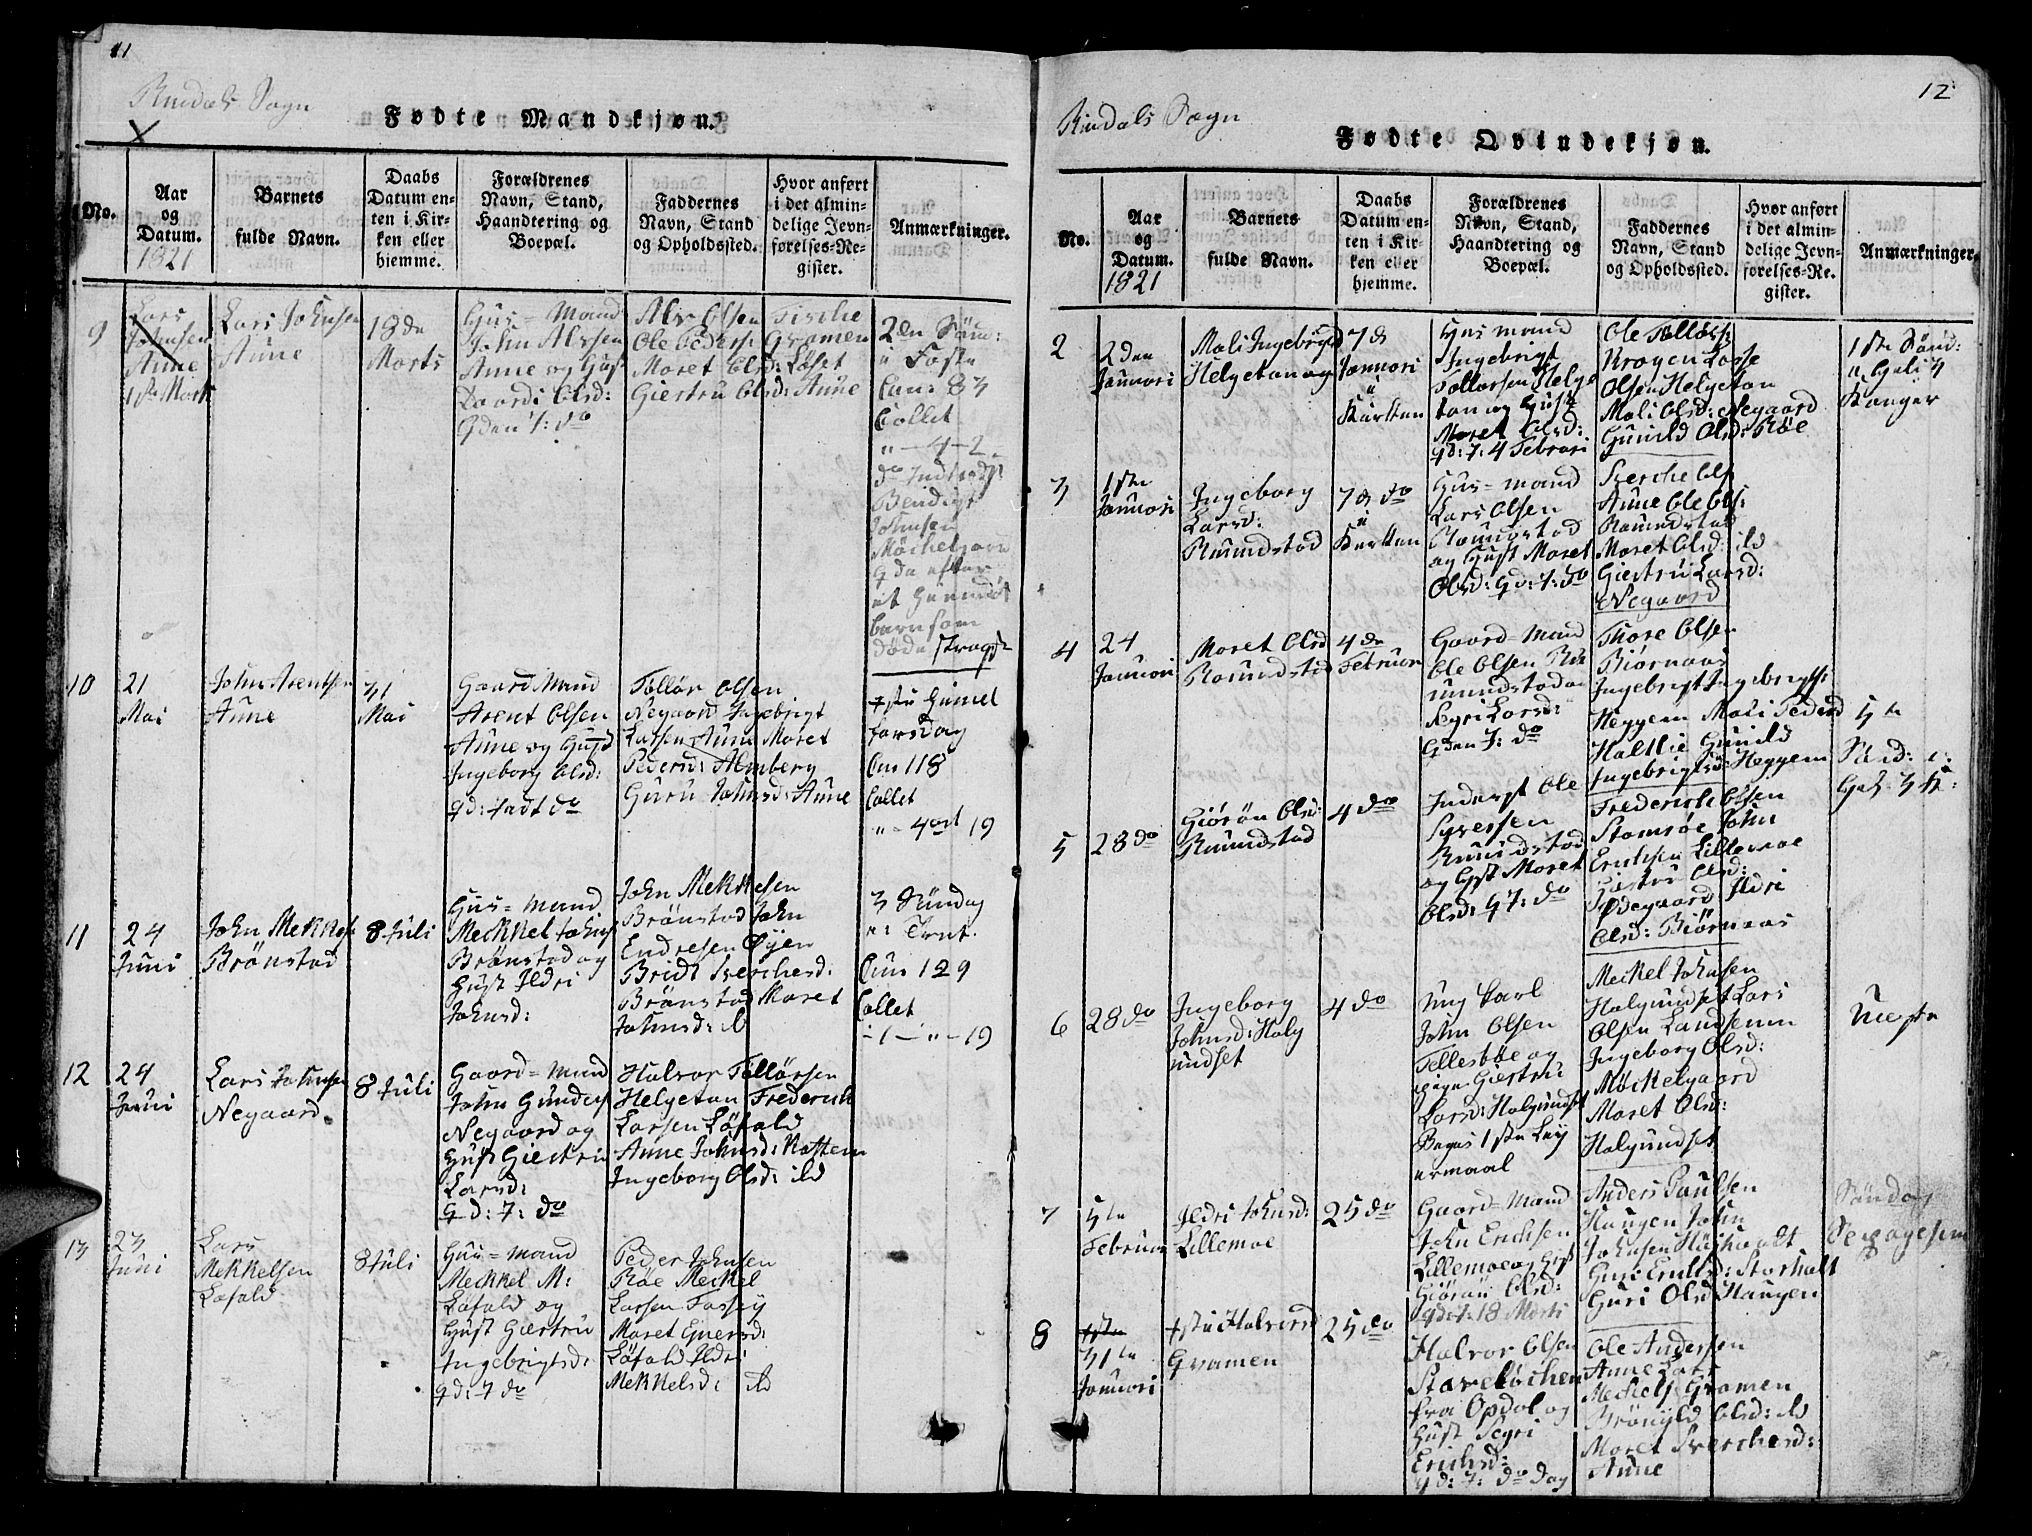 11
Rindals Sogn
Fødte Mandkjøn.
No.
Aar og Datum.
1821
Barnets fulde Navn.
Daabs Datum enten i Kirken eller hjemme.
Forældrenes Navn, Stand, Haandtering og Boepæl.
Faddernes Navn, Stand og Opholdssted.
Hvor anført i det almindelige Jevnførelses-Register.
Anmærkninger.
9
Lars
Johnsen
Aune
1ste Marts
Lars Johnsen
Aune
18de
Marts
Hus=Mand
John Alvsen
Aune og Hust
Olsd:
Alv Olsen
Ole Peders: Gramen
Maret Olsd: Løset
Giertru Olsd: Aune
2den Sønd:
Faste
83
Collet
"-4-2
Bendigt
Johnsen
barn som
døde strags
10
21
Mai
John Arentsen
Aune
31
Mai
Gaard Mand
Arent Olsen
Aune og Hust
Ingeborg Olsd:
Tollør Olsen
Negaard Ingebrigt
Larsen Aune Maret
Pedersd: Almberg
Guru Johnsd: Aune
118
Collet
19
11
24
Juni
John Mekkels:
Brønstad
8 Juli
Huus=mand
Meckkel Johns:
Brønstad og
Hust Ildri
Johnsd:
John Mekkelsen
Brønstad John
Endresen Øyen
Bridt Sverchesd:
Brønstad Maret
Johnsd: do
3 Søndag
Trnt.
129
Collet
-1-"-19
12
24
Juni
Lars Johnsen
Negaard
8 Juli
Gaard=mand
John Gunders
Negaard og
Hust Giertru
Larsd:
G d: 7: do
Halvor Tollørsen
Helgetun Frederich
Larsen Løfald
Anne Johnsd: Kattem
Ingeborg Olsd: ibd
13
23
Juni
Lars
Mekkelsen
Løfald
8 Juli
Huus=mand
Meckkel M:
Løfald og
Hust Giertru
Ingebrigtsd:
gd: 7 do
Peder Johnsen
Røe Meckel
Larsen Fossøy
Maret Ejversd:
Løfald Ildri
Mekkelsd: ibd
12
Rindals Sogn
Fødte Qvindekjøn.
No.
Aar og Datum.
1821
Barnets fulde Navn.
Daabs Datum enten i Kirken eller hjemme.
Forældrenes Navn, Stand, Haandtering og Boepæl.
Faddernes Navn, Stand og Opholdssted.
Hvor anført i det almindelige Jevnførelses-Register.
Anmærkninger.
2
2den
Januari
Mali Ingebrigtsd
Helgetunog
7 d
Januari
i
Kirken
Husmand
Ingebrigt
Tollørsen Helge
tun og Hust
Maret Olsd:
gd: 7: 4 Februari
Ole Tollørs:
Krogen Lasse
Olsen Helgetun
Mali Olsd: Negaard
Gunild Olsd: Røe
1ste Sønd:
3
Konger
3
1ste
Januari
Ingeborg
Larsd:
Rmundstad
7d do
i
Kirken
Huus=mand
Lars Olsen
og Hust Maret
Olsd: gd: 7: do
Sverche Ols
Aune Ole Ols:
Romundstad
Maret Olsd: ibd
Giertru Larsd:
Negaard
4
24
Januari
Maret Olsd
Romundstad
4de
Februar
Gaard=Mand
Ole Olsen Ro
mundstad og
Segri Larsd:
Gden 7: do
Thore Olsen
Biørnaas
Ingebrigt Ingebrigts:
Heggem Mali Pedersd
Haltlie Gunild
Ingebrigtsd: Heggem
5te
Sønd:
5
28 do
Giørøn Olsd:
Rmundstad
4 do
Inderst Ole
Syversen
Rmundstad
og Hust Maret
Olsd: g 7: do
Frederich Olsen
Stomrøe John
Erichsen Lillemoe
Giertru Olsd:
Ødegaard Ildri
Olsd: Biørnaas
6
28 do
Ingeborg
Johnsd: Halg
undset
4 do
Ung karl
John Olsen
Tellesbøe og
pige Giertru
Larsd: Halgundset
Beges 1ste Ley
ermaal
Meckel Johnsen
Halgundset Lars
Olsen Landsemm
Ingeborg Olsd:
Møckelgaard
Maret Olsd:
Halgundset
7
5te
Februar
Ildri Johnsd:
Lillemoe
25 do
Gaard=Mand
John Erichsen
Lillemoe og Hust
Giørøn Olsd:
gd: 7: 18 Marts
Anders Paulsen
Haugen John
Johnsen
Guri Erichsd: Storholt
Guri Olsd Haugen
Søndag
8
31te
Januari
Halvorsd
Gramen
25 do
Halvor Olsen
Stareløchen
fra Opdal og
Hust Segri
Erichsd:
gd: 7: do dag
Ole Andersen
Aune Lars
Meckels: Gramen
Brønyld Olsd: ibd
Maret Sverchesd:
Aune